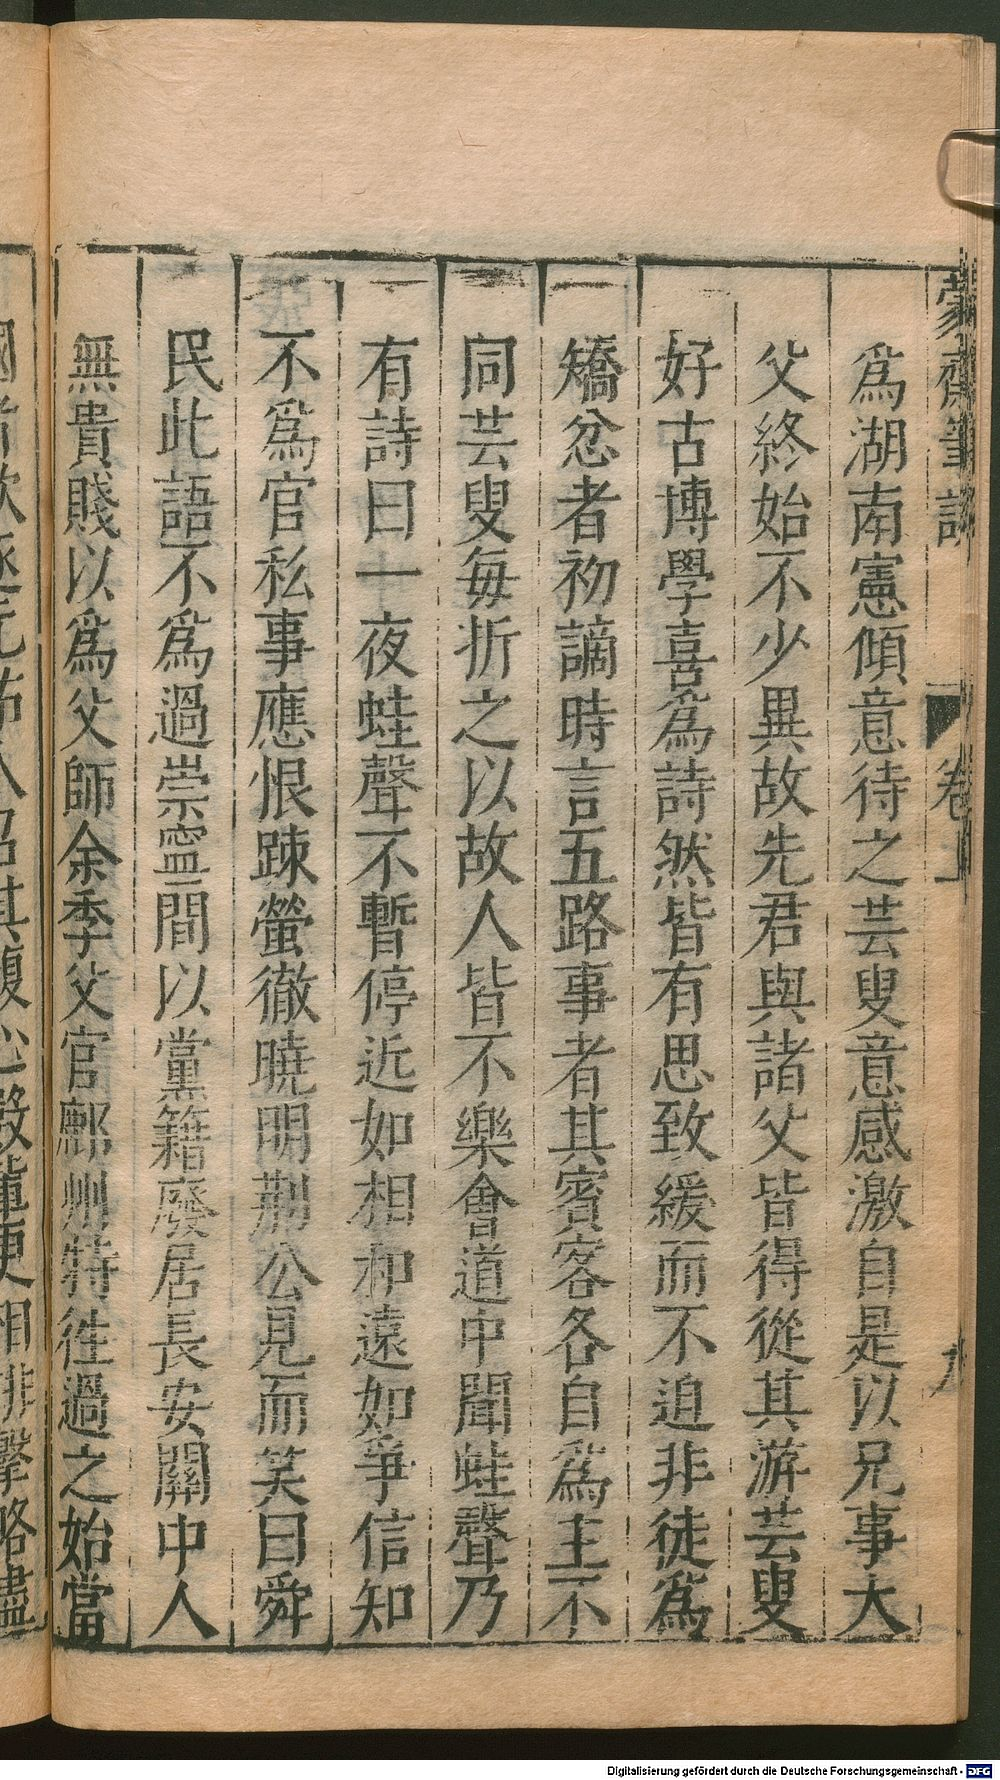 蒙齋筆談 卷上
爲湖南憲傾意待之芸叟意感激自是以兄事大
父終始不少異故先君與諸父皆得從其游芸叟
好古博學喜爲詩然皆有思致緩而不迫非徒爲
矯忿者初謫時言五路事者其賓客各自爲主不
同芸叟每折之以故人皆不樂會道中聞蛙聲乃
有詩曰一夜蛙聲不暫停近如相和遠如爭信知
不爲官私事應恨踈螢徹曉明荆公見而笑曰舜
民此語不爲過崇寍間以黨籍廢居長安關中人
無貴賤以爲父師余季父官鄜州特徃過之始當
Digitalisierung gefördert durch die Deutsche Forschungsgemeinschaft - DFG